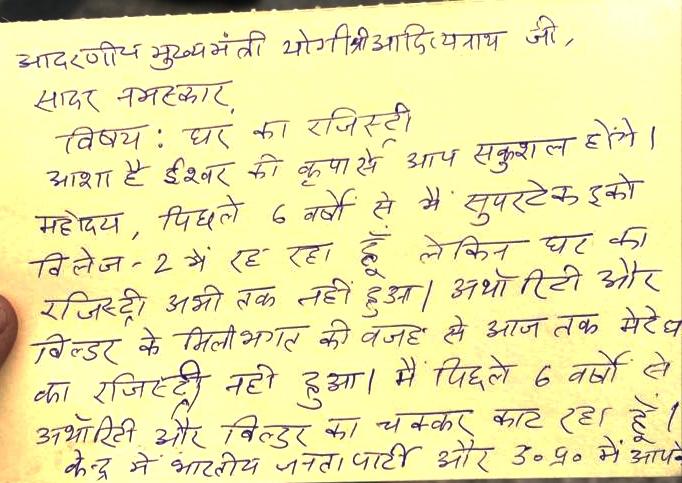 आदरणीय मुख्यमंत्री योगीश्रीआदित्यनाथ जी,
सादर नमस्कार,
विषय : घर का रजिस्टी
आशा है ईश्वर की कृपासे आप सकुशल होंगे।
महोदय, पिछले 6 वर्षों से मैं सुपरटेक इको
विलेज-2 में रह रहा हूँ लेकिन घर का
रजिस्ट्री अभी तक नहीं हुआ। अथॉरिटी और
बिल्डर के मिलीभगत की वजह से आज तक मेरे घ
का रजिस्ट्री नही हुआ। मैं पिछले 6 वर्षों से
अथॉरिटी और बिल्डर का चक्कर काट रहा हूँ।
केन्द्र में भारतीय जनता पार्टी और उ०प्र० में आपके